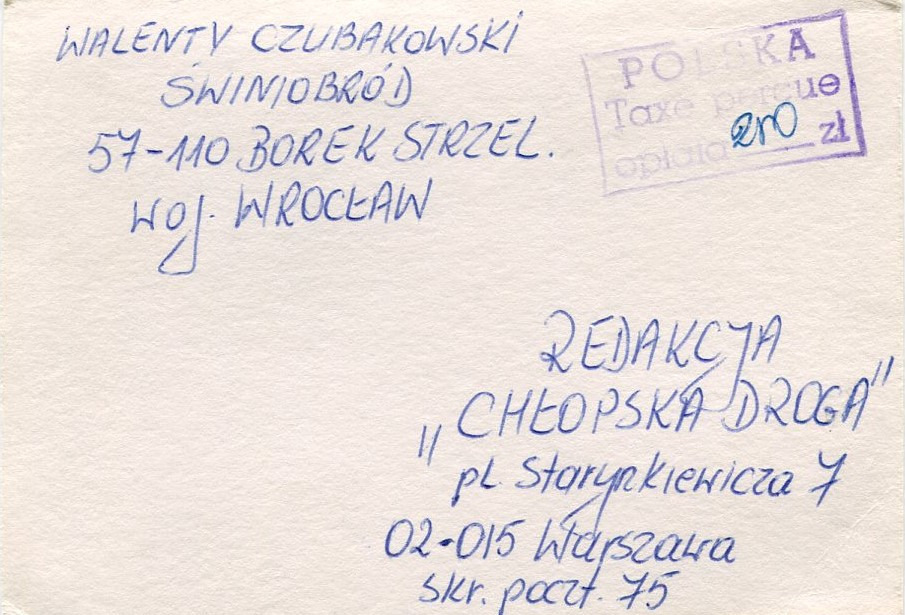 WALENTY CZUBAKOWSKI
ŚWINIOBRÓD
57-110 BOREK STRZEL.
woj. WROCŁAW
POLSKA
Taxe perçue
opłata 200 zł
REDAKCJA
„CHŁOPSKA DROGA"
pl. Starynkiewicza 7
02-015 Warszawa
skr. poczt. 75